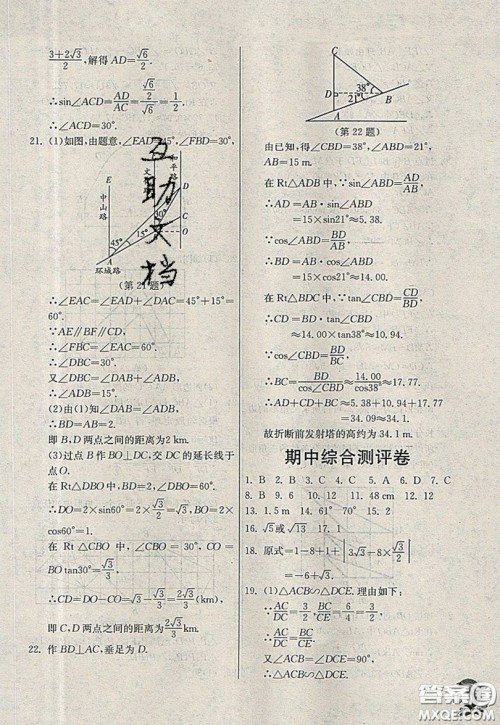 3+2√3/2，解得 AD=√6/2.
∴sin∠ACD=AD/AC=(√6/2)/√6=1/2.
∴∠ACD=30°.
21. (1)如图，由题意，∠EAD=45°，∠FBD=30°，
E
中山路
文
和平路
D
C
B
O
45°
15°
30°
A
环城路
(第21题)
∴∠EAC=∠EAD+∠DAC=45°+15°=
60°.
∵AE∥BF∥CD，
∴∠FBC=∠EAC=60°.
∴∠DBC=30°.
又∵∠DBC=∠DAB+∠ADB，
∴∠ADB=15°.
(2)由(1)知∠DAB=∠ADB，
∴BD=AB=2.
即 B，D 两点之间的距离为2 km.
(3)过点 B 作 BO⊥DC，交 DC 的延长线于
点 O.
在 Rt△DBO 中，BD=2，∠DBO=60°，
∴DO=2×sin60°=2×√3/2=√3，BO=2×
cos60°=1.
在 Rt△CBO 中，∠CBO=30°，CO=
BOtan30°=√3/3，
∴CD=DO−CO=√3−√3/3=2√3/3(km).
即 C，D 两点之间的距离为2√3/3 km.
22. 作 BD⊥AC，垂足为 D.
C
D
38°
21°
B
A
(第22题)
由已知，得∠CBD=38°，∠ABD=21°，
AB=15 m.
在 Rt△ADB 中，∵sin∠ABD=AD/AB，
∴AD=AB·sin∠ABD
=15×sin21°≈5.38.
∵cos∠ABD=BD/AB，
∴BD=AB·cos∠ABD
=15×cos21°≈14.00.
在 Rt△BDC 中，∵tan∠CBD=CD/BD，
∴CD=BD·tan∠CBD
≈14.00×tan38°≈10.94.
∵cos∠CBD=BD/BC，
∴BC=BD/cos∠CBD≈14.00/cos38°≈17.77.
∴AD+CD+BC≈5.38+10.94+17.77
=34.09≈34.1.
故折断前发射塔的高约为 34.1 m.
期中综合测评卷
1. B 2. B 3. A 4. C 5. A 6. D 7. C
8. B 9. B 10. C 11. 48 12. 12
13. 1.5 m 14. 63° 15. 2
16. √5或√13 17. 1
18. 原式=1−8+1+|3√3−8×√3/2|
=−6+√3.
19. (1)△ABC∽△DCE. 理由如下：
∵AC/DC=3/2，BC/CE=6/4=3/2，
∴AC/DC=BC/CE.
又∠ACB=∠DCE=90°，
∴△ACB∽△DCE.
互助文档
答案圈
MXQE.COM